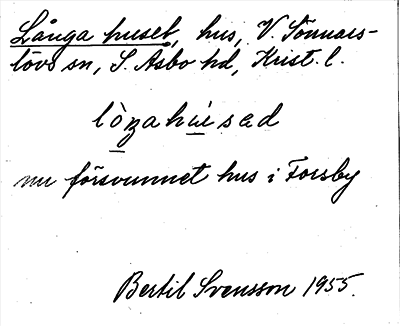 Långa huset, hus, V. Sönnars-
lövs sn, S. Åsbo hd, Krist. l.
lòŋahúsæd
nu försvunnet hus i Forsby
Bertil Svensson 1955.